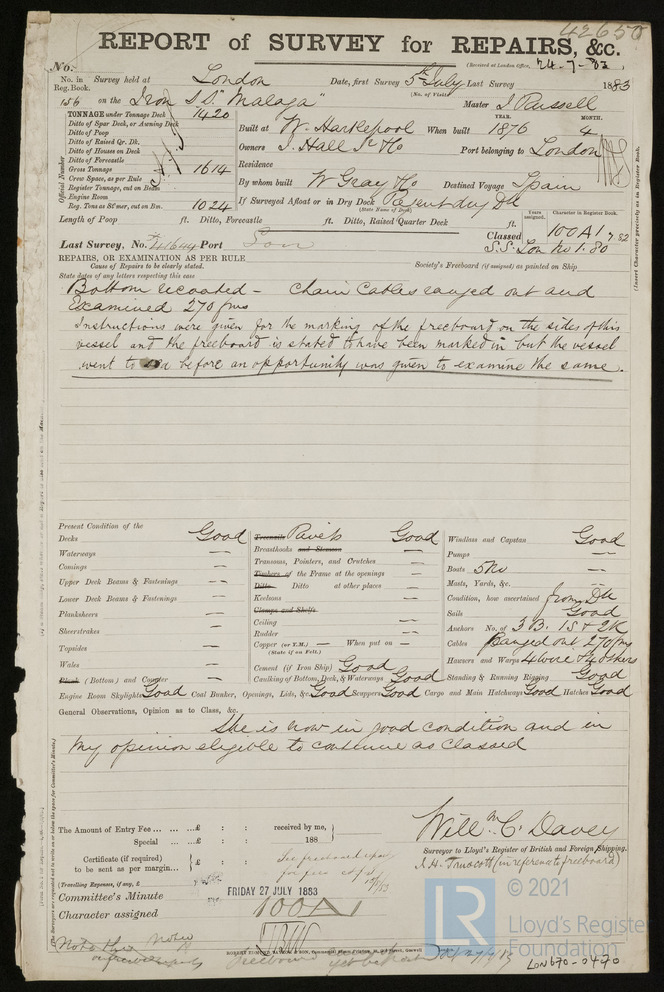 42650
REPORT of SURVEY for REPAIRS, &c.
(Received at London Office, 24-7-83)
No.
No. in Reg. Book. Survey held at London Date, first Survey 5th July Last Survey 1883
(No. of Visits)
156 on the Iron S.S. "Malaga" Master J. Russell
TONNAGE under Tonnage Deck 1420
Ditto of Spar Deck, or Awning Deck
Ditto of Poop
Ditto of Raised Qr. Dk.
Ditto of Houses on Deck
Ditto of Forecastle
Gross Tonnage 1614
Crew Space, as per Rule
Register Tonnage, cut on Beam
Engine Room
Reg. Tons as St'mer, cut on Bm. 1024
Official Number
Built at W. Hartlepool When built YEAR. 1876 MONTH. 4
Owners J. Hall Jr & Co Port belonging to London
Residence
By whom built W Gray & Co Destined Voyage Spain
If Surveyed Afloat or in Dry Dock Regent dry Dk
(State Name of Dock)
Length of Poop ft. Ditto, Forecastle ft. Ditto, Raised Quarter Deck ft.
Years assigned. Character in Register Book.
Classed 100A1 7.82
S.S. Lon No 1.80
(Insert Character precisely as in Register Book.)
Last Survey, No. 41644 Port Lon
REPAIRS, OR EXAMINATION AS PER RULE
Cause of Repairs to be clearly stated. Society's Freeboard (if assigned) as painted on Ship
State dates of any letters respecting this case
Bottom recoated - Chain Cables ranged out and
Examined 270 fms
Instructions were given for the marking of the freeboard on the sides of this
vessel and the freeboard is stated to have been marked in but the vessel
went to sea before an opportunity was given to examine the same.
Present Condition of the
Decks Good
Waterways —
Comings —
Upper Deck Beams & Fastenings —
Lower Deck Beams & Fastenings —
Planksheers —
Sheerstrakes —
Topsides —
Wales —
Plank (Bottom) and Counter —
Treenails Rivets Good
Breasthooks and Stemson —
Transoms, Pointers, and Crutches —
Timbers of the Frame at the openings —
Ditto Ditto at other places —
Keelsons —
Clamps and Shelfs
Ceiling —
Rudder —
Copper (or Y.M.) — When put on —
(State if on Felt.)
Cement (if Iron Ship) Good
Caulking of Bottom, Deck, & Waterways Good
Windlass and Capstan Good
Pumps —
Boats 5 No —
Masts, Yards, &c. —
Condition, how ascertained from Dk
Sails Good
Anchors No. of 3 B. 1 S + 2 K
Cables Ranged out 270 fms
Hawsers and Warps 4 wire + 4 others
Standing & Running Rigging Good
Engine Room Skylights Good Coal Bunker, Openings, Lids, &c. Good Scuppers Good Cargo and Main Hatchways Good Hatches Good
General Observations, Opinion as to Class, &c.
She is now in good condition and in
my opinion eligible to continue as classed
The Amount of Entry Fee £ : : received by me,
Special £ : : 188
Certificate (if required) to be sent as per margin £ : :
See freeboard report
for fees
(Travelling Expenses, if any, £
Will m C. Davey
Surveyor to Lloyd's Register of British and Foreign Shipping.
J. H. Truscott (in reference to freeboard)
Committee's Minute FRIDAY 27 JULY 1883
Character assigned 100A1
(The Surveyors are requested not to write on or below the space for Committee's Minute.)
Noted
LR
© 2021
Lloyd's Register
Foundation
LON670-0470